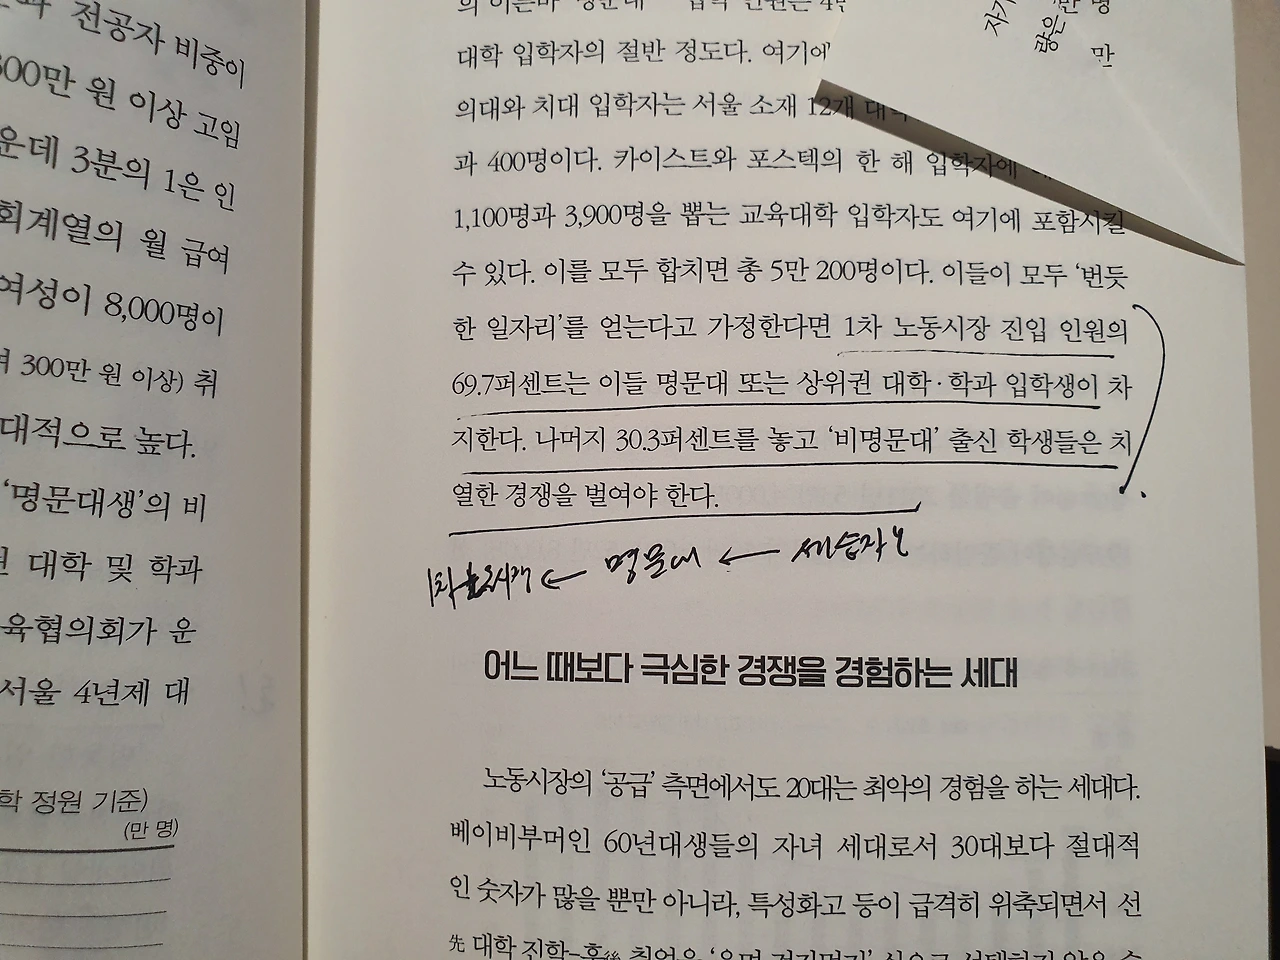 전공자 비중이
300만 원 이상 고임
운데 3분의 1은 인
회계열의 월 급여
여성이 8,000명이
300만 원 이상) 취
대적으로 높다.
'명문대생'의 비
대학 및 학과
육협의회가 운
서울 4년제 대
학 정원 기준)
(만 명)
대학 입학자의 절반 정도다. 여기에
의대와 치대 입학자는 서울 소재 12개
과 400명이다. 카이스트와 포스텍의 한 해 입학자에
1,100명과 3,900명을 뽑는 교육대학 입학자도 여기에 포함시킬
수 있다. 이를 모두 합치면 총 5만 200명이다. 이들이 모두 '번듯
한 일자리'를 얻는다고 가정한다면 1차 노동시장 진입 인원의
69.7퍼센트는 이들 명문대 또는 상위권 대학·학과 입학생이 차
지한다. 나머지 30.3퍼센트를 놓고 '비명문대' 출신 학생들은 치
열한 경쟁을 벌여야 한다.
← 명문대 ←
어느 때보다 극심한 경쟁을 경험하는 세대
노동시장의 '공급' 측면에서도 20대는 최악의 경험을 하는 세대다.
베이비부머인 60년대생들의 자녀 세대로서 30대보다 절대적
인 숫자가 많을 뿐만 아니라, 특성화고 등이 급격히 위축되면서 선
先 대학 진학-후後 취업을
만 명
많은
만